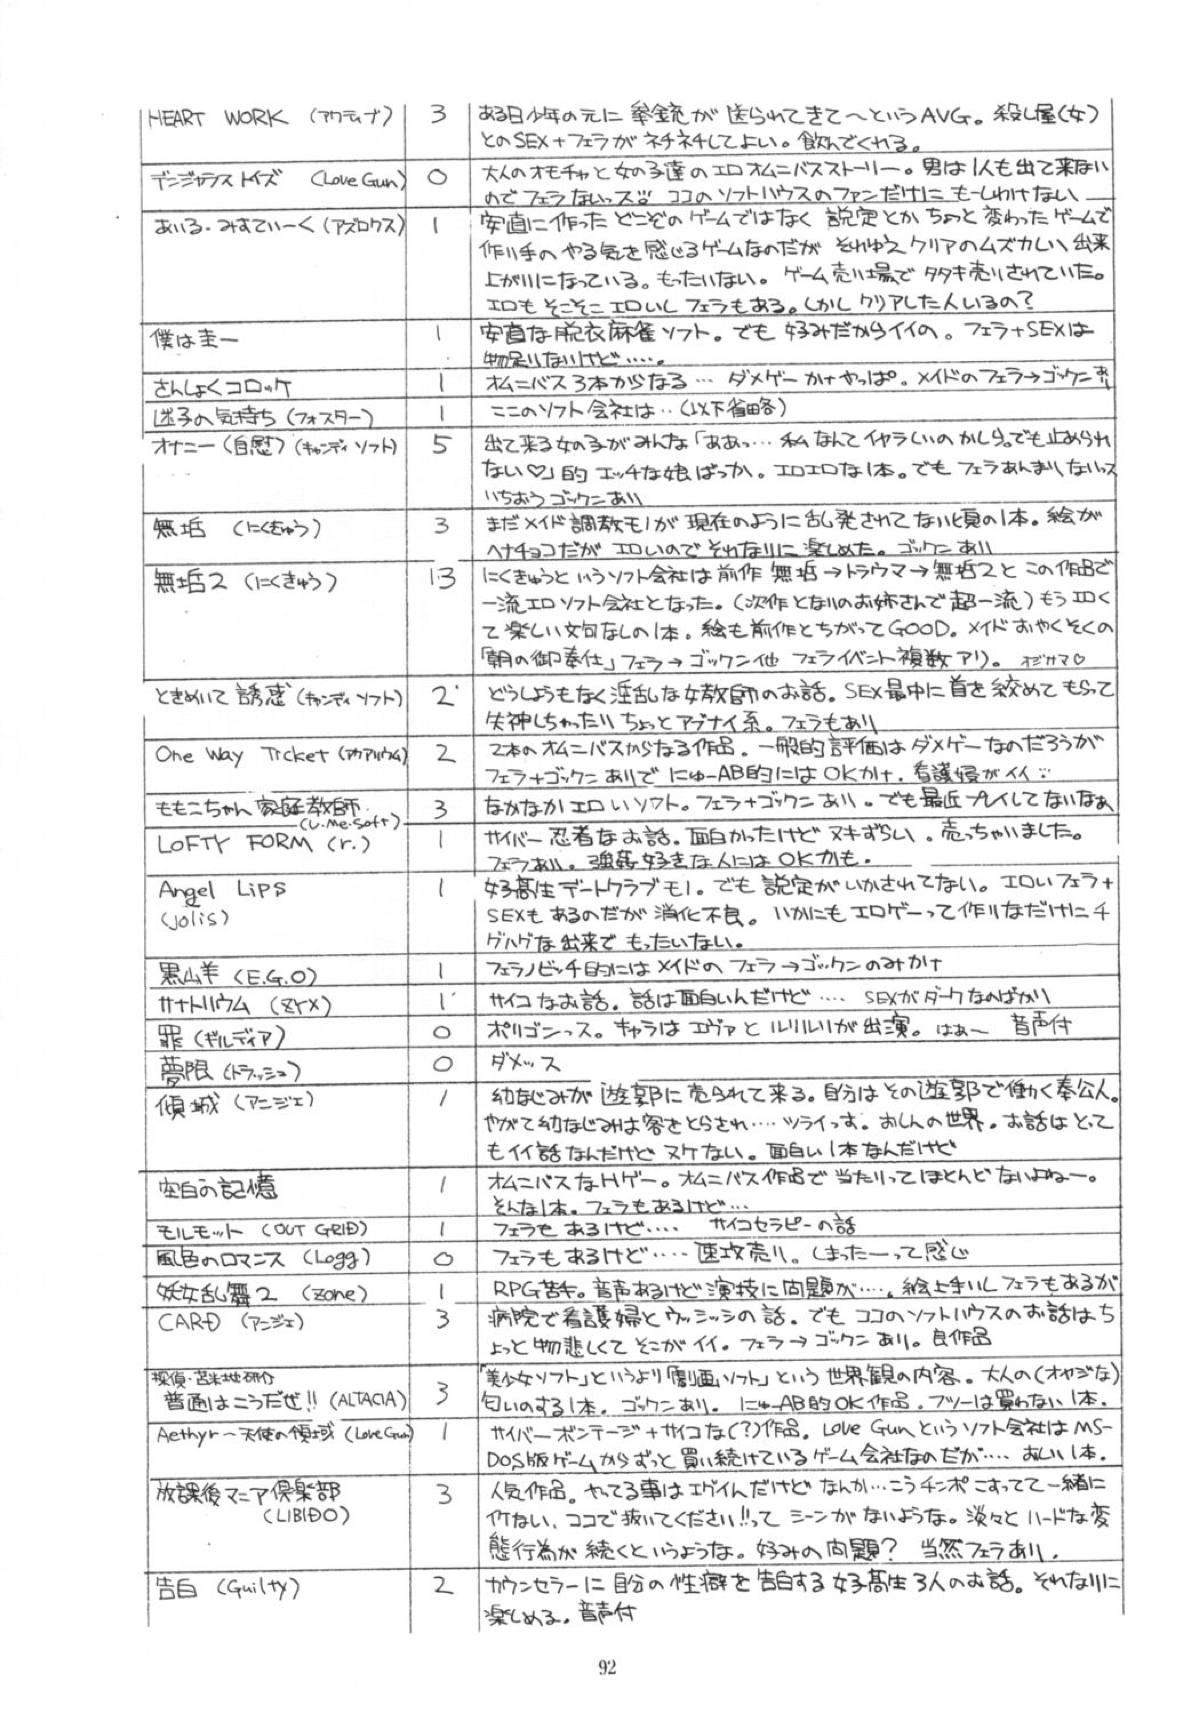 HEART WORK (アクティブ) 3 ある日少年の元に拳銃が送られてきて〜というAVG。殺し屋(女)
とのSEX+フェラがネチネチしてよい。飲んでくれる。
デンジャラストイズ (Love Gun) 0 大人のオモチャと女の子達のエロオムニバスストーリー。男は1人も出て来ない
のでフェラないっス!! ココのソフトハウスのファンだけにもーしわけない
あいる・みすてぃーく(アズロクス) 1 安直に作ったどこぞのゲームではなく 設定とかちょっと変わったゲームで
作り手のやる気を感じるゲームなのだが それゆえクリアのムズカしい出来
上がりになっている。もったいない。ゲーム売り場でタタキ売りされていた。
エロもそこそこエロいしフェラもある。しかしクリアした人いるの?
僕は圭一 1 安直な脱衣麻雀ソフト。でも好みだからイイの。フェラ+SEXは
物足りないけど‥‥。
さんしょくコロッケ 1 オムニバス3本からなる… ダメゲーかナやっぱ。メイドのフェラ→ゴックンあり
迷子の気持ち(フォスター) 1 ここのソフト会社は‥(以下省略)
オナニー(自慰)(キャンディソフト) 5 出て来る女の子がみんな「ああっ… 私なんてイヤラしいのかしら。でも止められ
ない♡」的エッチな娘ばっか。エロエロな1本。でもフェラあんまりないっス
いちおうゴックンあり
無垢 (にくきゅう) 3 まだメイド調教モノが現在のように乱発されてない頃の1本。絵が
ヘナチョコだが エロいのでそれなりに楽しめた。ゴックンあり
無垢2 (にくきゅう) 13 にくきゅうというソフト会社は前作 無垢→トラウマ→無垢2と この作品で
一流エロソフト会社となった。(次作となりのお姉さんで超一流)もうエロく
て楽しい文句なしの1本。絵も前作とちがってGOOD。メイドおやくそくの
「朝の御奉仕」フェラ→ゴックン他 フェライベント複数アリ。 オジサマ♡
ときめいて誘惑(キャンディソフト) 2 どうしようもなく淫乱な女教師のお話。SEX最中に首を絞めてもらって
失神しちゃったりちょっとアブナイ系。フェラもあり
One Way Ticket (アクアリウム) 2 2本のオムニバスからなる作品。一般的評価はダメゲーなのだろうが
フェラ+ゴックンありでにゅーAB的にはOKかナ。看護婦がイイ
ももこちゃん家庭教師 3 なかなかエロいソフト。フェラ+ゴックンあり。でも最近プレイしてないなぁ
(U・Me・Soft)
LOFTY FORM (r.) 1 サイバー忍者なお話。面白かったけどヌキずらい。売っちゃいました。
フェラあり。強姦好きな人にはOKかも。
Angel Lips 1 女子高生デートクラブモノ。でも設定がいかされてない。エロいフェラ+
(jolis) SEXもあるのだが消化不良。いかにもエロゲーって作りなだけにチ
グハグな出来でもったいない。
黒山羊 (E.G.O) 1 フェラノビッチ的にはメイドのフェラ→ゴックンのみかナ
サナトリウム (ZYX) 1 サイコなお話。話は面白いんだけど‥‥ SEXがダークなのばかり
罪(ギルティア) 0 ポリゴンっス。キャラはエヴァとルリルリが出演。はぁ〜 音声付
夢限(トラッシュ) 0 ダメッス
傾城(アニジェ) 1 幼なじみが遊郭に売られて来る。自分はその遊郭で働く奉公人。
やがて幼なじみは客をとらされ‥‥ツライっす。おしんの世界。お話はとって
もイイ話なんだけどヌケない。面白い1本なんだけど
空白の記憶 1 オムニバスなHゲー。オムニバス作品で当たりってほとんどないよねー。
そんな1本。フェラもあるけど…
モルモット (OUT GRID) 1 フェラもあるけど‥‥ サイコセラピーの話
風色のロマンス (Logg) 0 フェラもあるけど‥‥ 速攻売り。しまったーって感じ
妖女乱舞2 (Zone) 1 RPG苦手。音声あるけど演技に問題が‥‥。絵上手いしフェラもあるが
CARD (アニジェ) 3 病院で看護婦とウッシッシの話。でもココのソフトハウスのお話はち
ょっと物悲しくてそこがイイ。フェラ→ゴックンあり。良作品
探偵・苫米地研介 「美少女ソフト」というより「劇画ソフト」という世界観の内容。大人の(オヤジな)
普通はこうだぜ!! (ALTACIA) 3 匂いのする1本。ゴックンあり。にゅーAB的OK作品。フツーは買わない1本。
Aethyr〜天使の領域 (Love Gun) 1 サイバーボンテージ+サイコな(?)作品。Love Gunというソフト会社はMS-
DOS版ゲームからずっと買い続けているゲーム会社なのだが‥‥ おしい1本。
放課後マニア倶楽部 3 人気作品。やてる事はエゲイんだけどなんか…こうチンポこすってて一緒に
(LIBIDO) イケない、ココで抜いてください!!ってシーンがないような。淡々とハードな変
態行為が続くというような。好みの問題? 当然フェラあり。
告白 (Guilty) 2 カウンセラーに自分の性癖を告白する女子高生3人のお話。それなりに
楽しめる。音声付
92